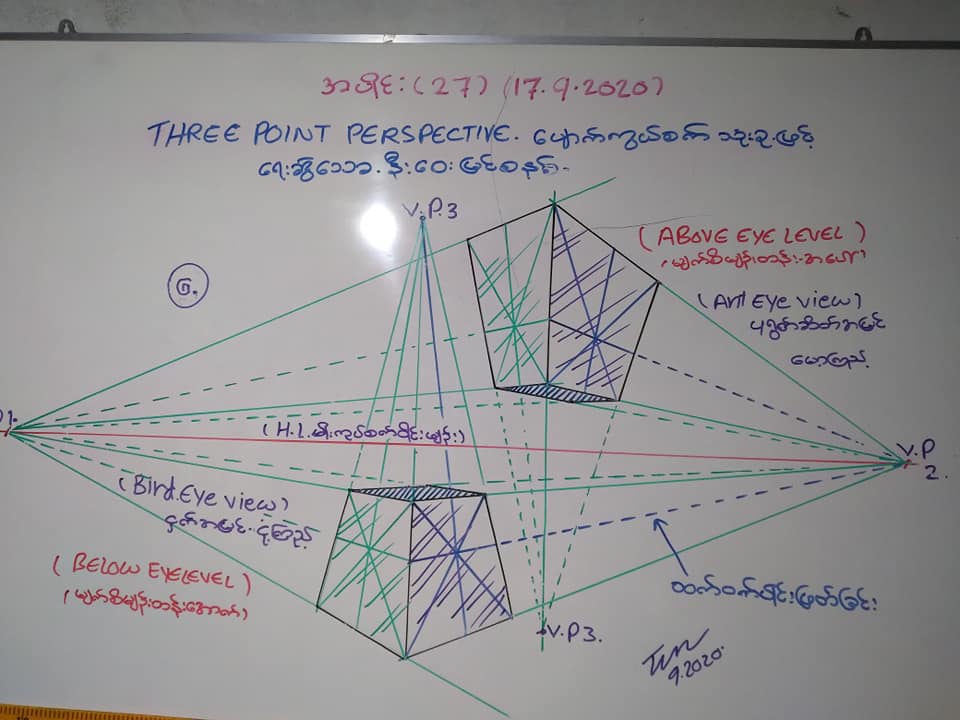 အပိုင်း (27) (17.9.2020)
THREE POINT PERSPECTIVE. ပျောက်ကွယ်စက် သုံးခုဖြင့်
ရေးဆွဲသော အနီးအဝေးမြင်စနစ်.
V.P.3
(ABOVE EYE LEVEL)
(မျက်စိမျဉ်းတန်းအပေါ်)
(Ant Eye view)
ပုရွက်ဆိတ်အမြင်
မော့ကြည့်
1.
(H.L မိုးကုပ်စက်ဝိုင်းမျဉ်း)
V.P
2.
(Bird.Eye view)
ငှက်အမြင်. ငုံ့ကြည့်
(BELOW EYELEVEL)
(မျက်စိမျဉ်းတန်းအောက်)
ထက်ဝက်ပိုင်းဖြတ်ခြင်း
V.P3.
9.2020.